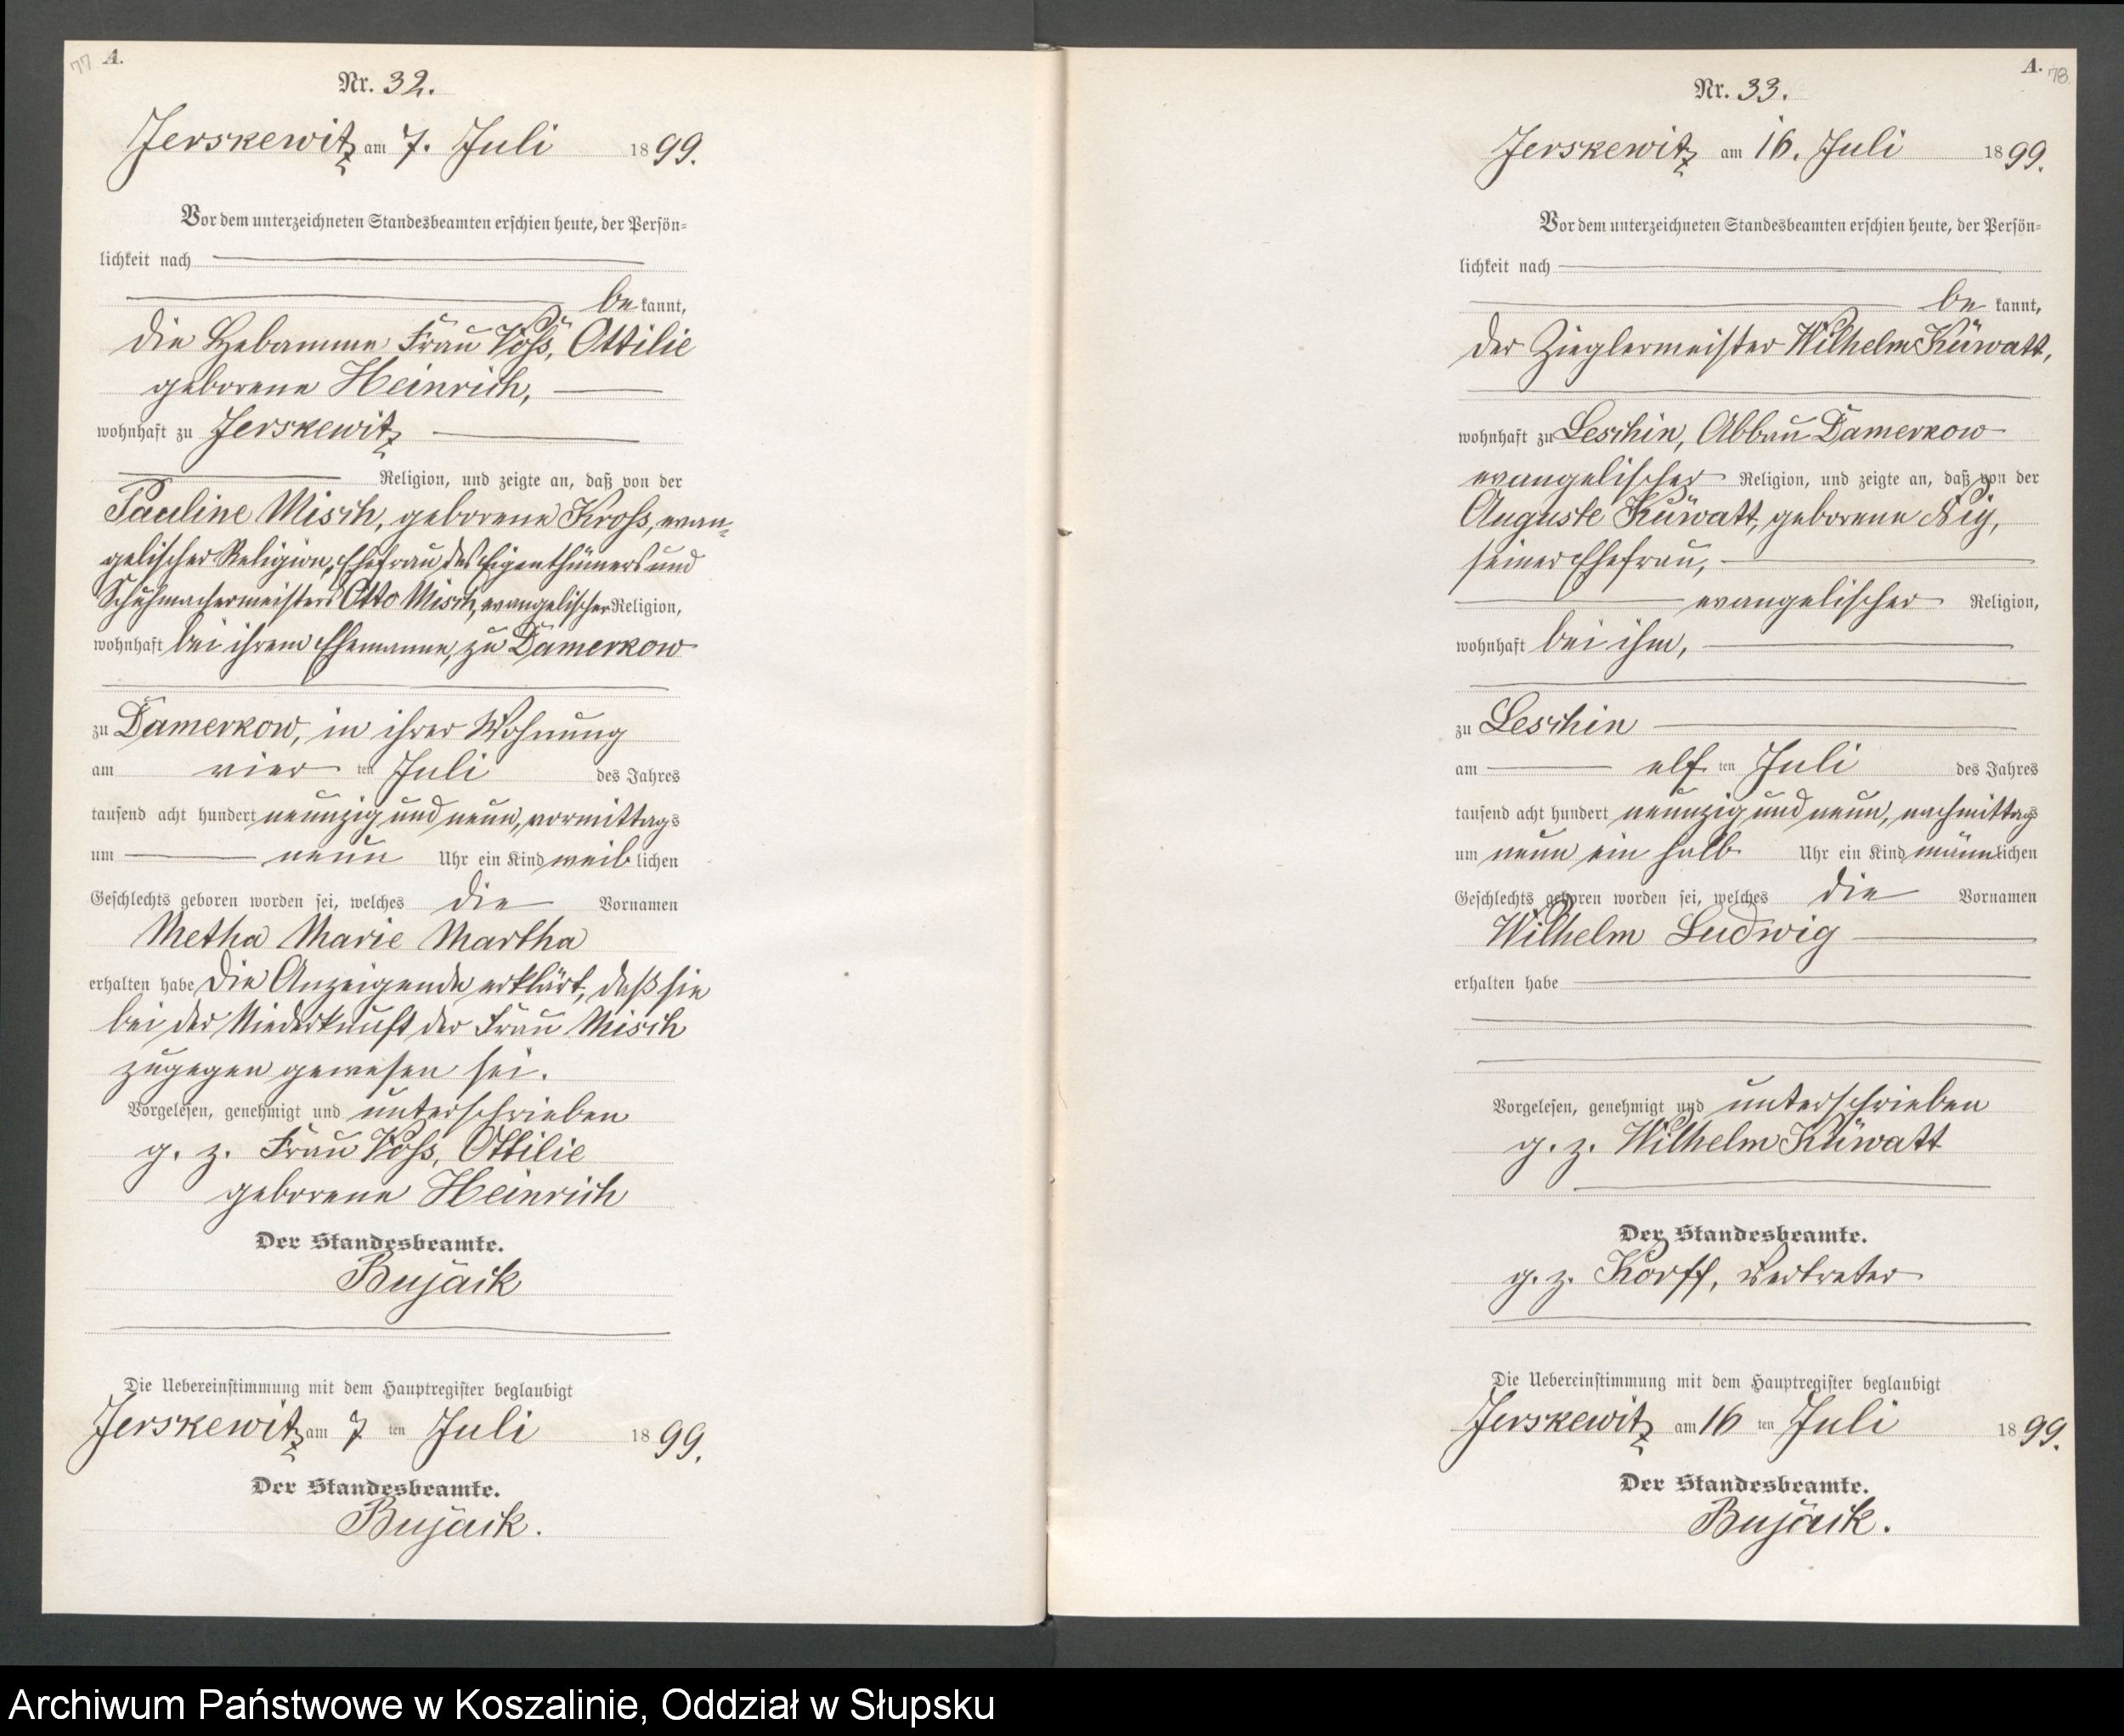 77 A.
Nr. 32.
Jerskewitz am 7. Juli 1899.
Vor dem unterzeichneten Standesbeamten erschien heute, der Persön-
lichkeit nach
be kannt,
die Hebamme Frau Voß, Ottilie
geborene Heinrich,
wohnhaft zu Jerskewitz
Religion, und zeigte an, daß von der
Pauline Misch, geborene Kroß, evan-
gelischer Religion, Ehefrau des Eigenthümers und
Schuhmachermeisters Otto Misch, evangelischer Religion,
wohnhaft bei ihrem Ehemanne, zu Damerkow
zu Damerkow, in ihrer Wohnung
am vier ten Juli des Jahres
tausend acht hundert neunzig und neun, vormittags
um neun Uhr ein Kind weiblichen
Geschlechts geboren worden sei, welches die Vornamen
Metha Marie Martha
erhalten habe Die Anzeigende erklärt, daß sie
bei der Niederkunft der Frau Misch
zugegen gewesen sei.
Vorgelesen, genehmigt und unterschrieben
g. z. Frau Voß, Ottilie
geborene Heinrich
Der Standesbeamte.
Bujack
Die Uebereinstimmung mit dem Hauptregister beglaubigt
Jerskewitz am 7 ten Juli 1899.
Der Standesbeamte.
Bujack.
A. 78
Nr. 33.
Jerskewitz am 16. Juli 1899.
Vor dem unterzeichneten Standesbeamten erschien heute, der Persön-
lichkeit nach
be kannt,
der Zieglermeister Wilhelm Küwatt,
wohnhaft zu Leschin, Abbau Damerkow
evangelischer Religion, und zeigte an, daß von der
Auguste Küwatt, geborene
seiner Ehefrau,
evangelischer Religion,
wohnhaft bei ihm,
zu Leschin
am elf ten Juli des Jahres
tausend acht hundert neunzig und neun, nachmittags
um neun ein halb Uhr ein Kind männlichen
Geschlechts geboren worden sei, welches die Vornamen
Wilhelm Ludwig
erhalten habe
Vorgelesen, genehmigt und unterschrieben
g. z. Wilhelm Küwatt
Der Standesbeamte.
g. z. Korff, Vertreter
Die Uebereinstimmung mit dem Hauptregister beglaubigt
Jerskewitz am 16 ten Juli 1899.
Der Standesbeamte.
Bujack.
Archiwum Państwowe w Koszalinie, Oddział w Słupsku